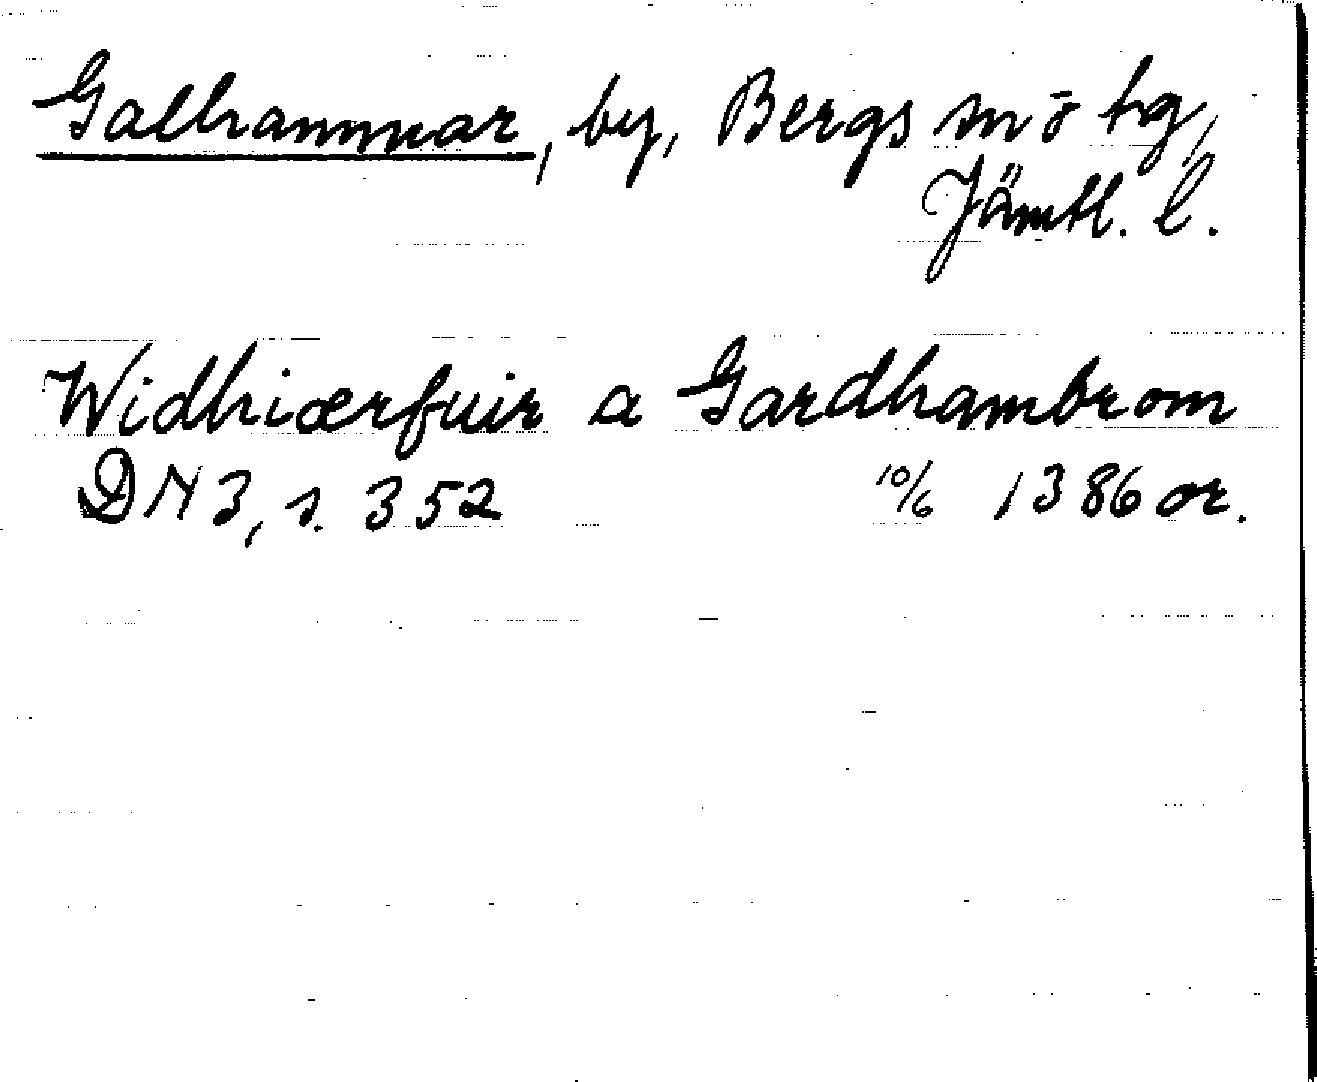 Galhammar, by, Bergs sn o tg,
Jämtl. l.
Widhiærfuir a Gardhambrom
DN 3, s. 352 10/6 1386 or.